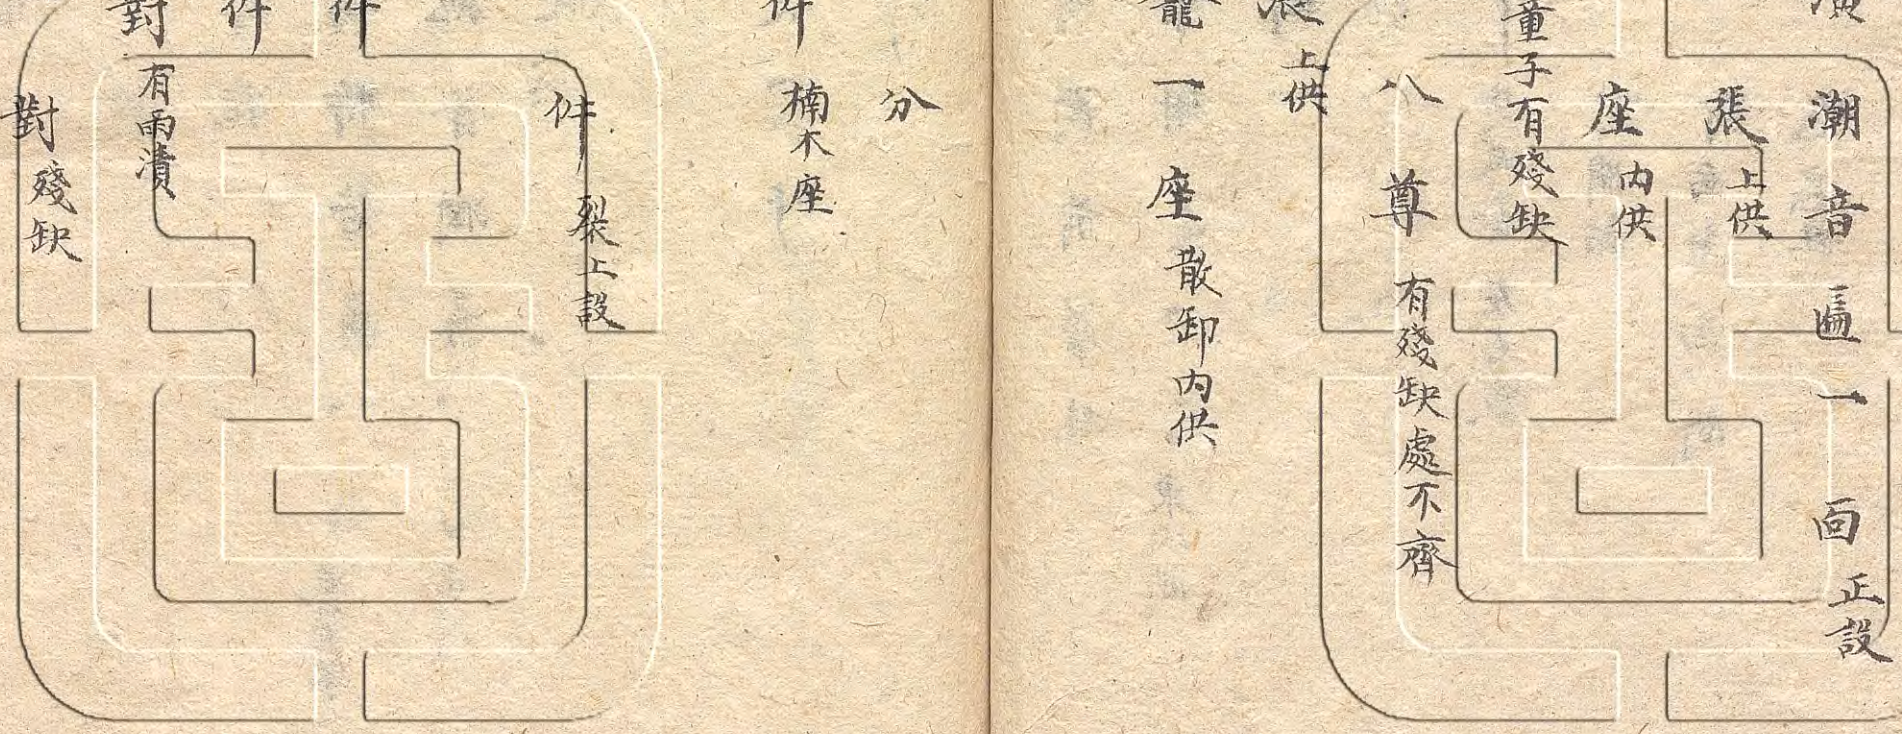 潮音匾一面正設
張上供
座内供
童子有殘缺
八尊有殘缺處不齊
上供
龕一座散卸内供
分
件楠木座
件裂上設
件
件
對有雨漬
對殘缺